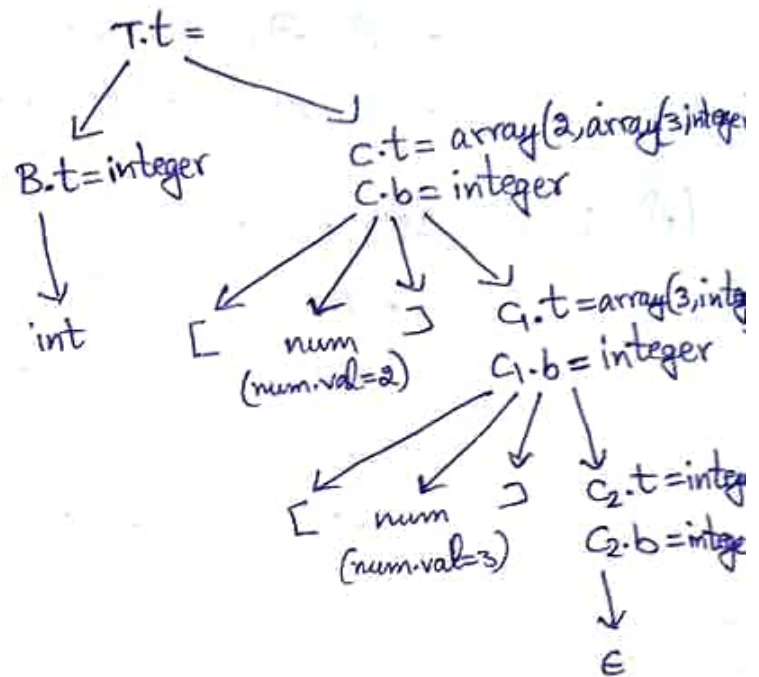 T.t =
B.t = integer
C.t = array(2, array(3, intege
C.b = integer
int
[ num ]
(num.val=2)
C₁.t = array(3, integ
C₁.b = integer
[ num ]
(num.val=3)
C₂.t = integ
C₂.b = intege
ϵ